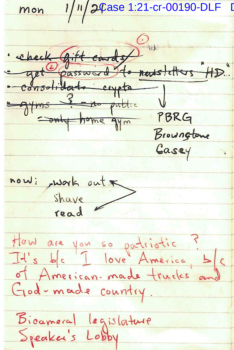 mon 1/11/2 Case 1:21-cr-00190-DLF D
check gift cards
get password to newsletters "HD"
consolidate crypto
gyms ? no public
only home gym
PBRG
Brownstone
Casey
now: work out
shave
read
How are you so patriotic ?
It's b/c I love America, b/c
of American-made trucks and
God-made country.
Bicameral legislature
Speaker's Lobby